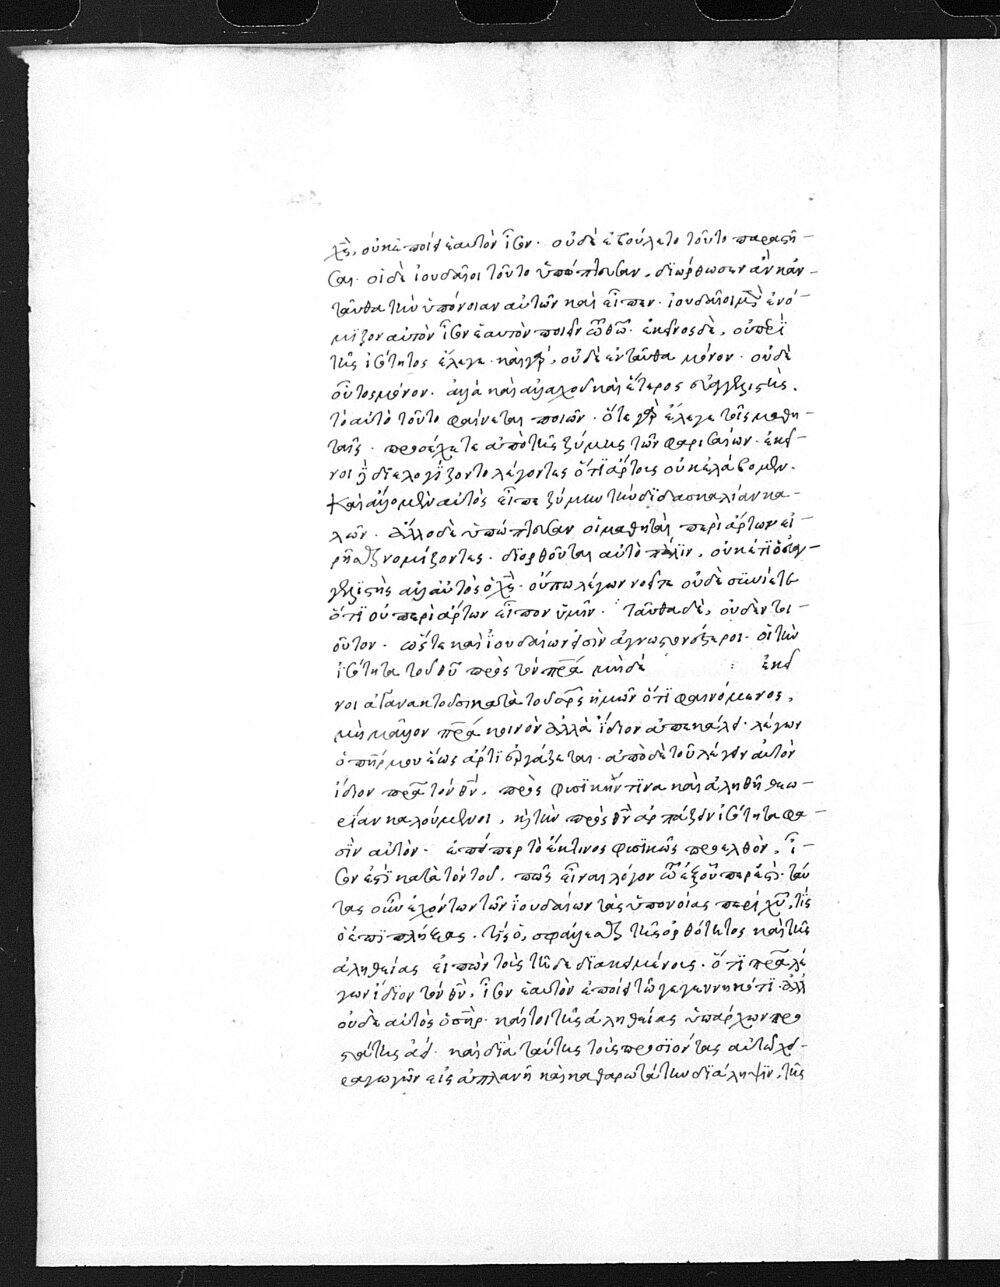 χς, οὐκ ἐποίει ἑαυτὸν ἴσον. οὐδὲ ἐβούλετο τοῦτο παραστῆ-
σαι. οἱ δὲ ἰουδαῖοι τοῦτο ὑπώπτευσαν, διώρθωσεν ἂν κἀν-
ταῦθα τὴν ὑπόνοιαν αὐτῶν καὶ εἶπεν. ἰουδαῖοι μὲν ἐνό-
μιζον αὐτὸν ἴσον ἑαυτὸν ποιεῖν τῶ θῶ. ἐκεῖνος δὲ, οὐ περὶ
τῆς ἰσότητος ἔλεγε. καὶ γὰρ, οὐδὲ ἐνταῦθα μόνον. οὐδὲ
οὗτος μόνον. ἀλλὰ καὶ ἀλλαχοῦ καὶ ἕτερος εὐαγγελιστὴς,
τὸ αὐτὸ τοῦτο φαίνεται ποιῶν. ὅτε γὰρ ἔλεγε τοῖς μαθη-
ταῖς. προσέχετε ἀπὸ τῆς ζύμης τῶν φαρισαίων. ἐκεῖ-
νοι δὲ διελογίζοντο λέγοντες ὅτι ἄρτους οὐκ ἐλάβομεν.
καὶ ἄλλο μὲν αὐτὸς εἶπε ζύμην τὴν διδασκαλίαν κα-
λῶν. ἄλλο δὲ ὑπώπτευσαν οἱ μαθηταὶ περὶ ἄρτων εἰ-
ρῆσθαι νομίζοντες. διορθοῦται αὐτὸ πάλιν, οὐκέτι ὁ εὐαγ-
γελιστὴς ἀλλ' αὐτὸς ὁ χς. οὕπω λέγων νοεῖτε οὐδὲ συνίετε
ὅτι οὐ περὶ ἄρτων εἶπον ὑμῖν. ἐνταῦθα δὲ, οὐδὲν τοι-
οῦτον. ὥστε καὶ ἰουδαίων εἰσὶν ἀγνωμονέστεροι. οἱ τὴν
ἰσότητα τοῦ υἱοῦ πρὸς τὸν πρα μὴ δε ἐκεῖ
νοι ἀγανακτοῦσι κατὰ τοῦ σρς ἡμῶν ὅτι φαινόμενος,
μὴ μόνον πρα κοινὸν ἀλλὰ ἴδιον ἀπεκάλει. λέγων
ὁ πηρ μου ἕως ἄρτι ἐργάζεται. ἀπὸ δὲ τοῦ λέγειν αὐτὸν
ἴδιον πρα τὸν θν, πρὸς φυσικήν τινα καὶ ἀληθῆ θεω-
ρίαν καλούμενοι, τὴν πρὸς θν ἁρπάζειν ἰσότητα φα-
σὶν αὐτὸν. ἐπείπερ τὸ ἔκ τινος φυσικῶς προελθὸν, ἴ-
σον ἐστὶ κατὰ τὸν τοῦ, πῶς εἶναι λόγον τῶ ἐξ οὗπερ ἐστὶ. ταύ
τας οὖν ἐχόντων τῶν ἰουδαίων τὰς ὑπονοίας περὶ χυ, τίς
ὁ ἐπιπλήξας. τίς ὁ, σφάλλεσθαι τῆς ὀρθότητος καὶ τῆς
ἀληθείας εἰπὼν τοὺς τῆδε διακειμένους. ὅτι πρα λέ
γων ἴδιον τὸν θν, ἴσον ἑαυτὸν ἐποίει τῶ γεγεννηκότι. ἀλλ'
οὐδὲ αὐτὸς ὁ σηρ. καίτοι τῆς ἀληθείας ὑπάρχων προ
στάτης ἀεί. καὶ διὰ ταύτης τοὺς προσιόντας αὐτῶ χει-
ραγωγῶν εἰς ἀπλανῆ καὶ καθαρωτάτην διάληψιν, τῆς